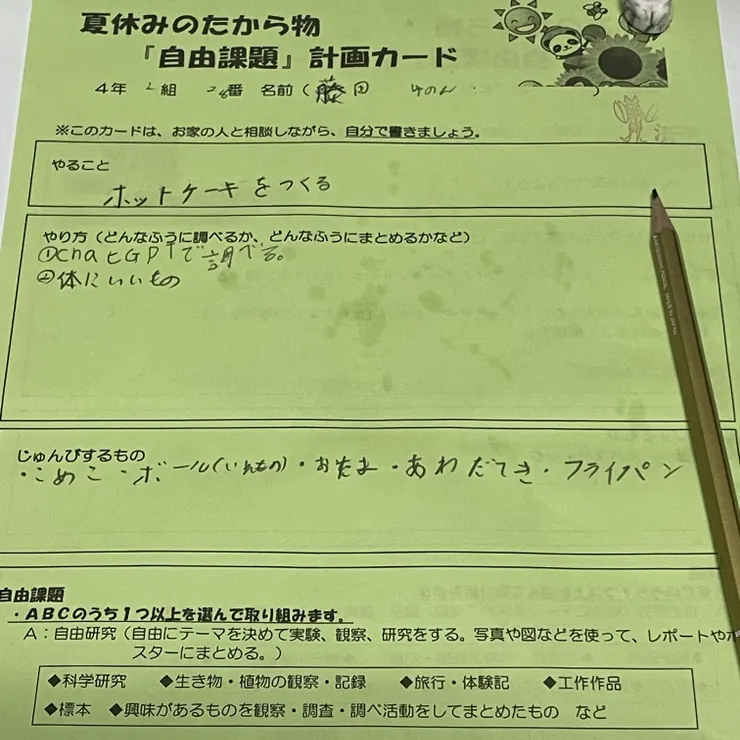 夏休みのたから物
『自由課題』計画カード
4年 2組 28番 名前(藤田
※このカードは、お家の人と相談しながら、自分で書きましょう。
やること
ホットケーキをつくる
やり方(どんなふうに調べるか、どんなふうにまとめるかなど)
①chatGPTで調べる。
②体にいいもの
じゅんびするもの
・こめこ・ボール(いれもの)・おたま・あわだてき・フライパン
自由課題
・ABCのうち1つ以上を選んで取り組みます。
A:自由研究(自由にテーマを決めて実験、観察、研究をする。写真や図などを使って、レポートやポ
スターにまとめる。)
◆科学研究 ◆生き物・植物の観察・記録 ◆旅行・体験記 ◆工作作品
◆標本 ◆興味があるものを観察・調査・調べ活動をしてまとめたもの など